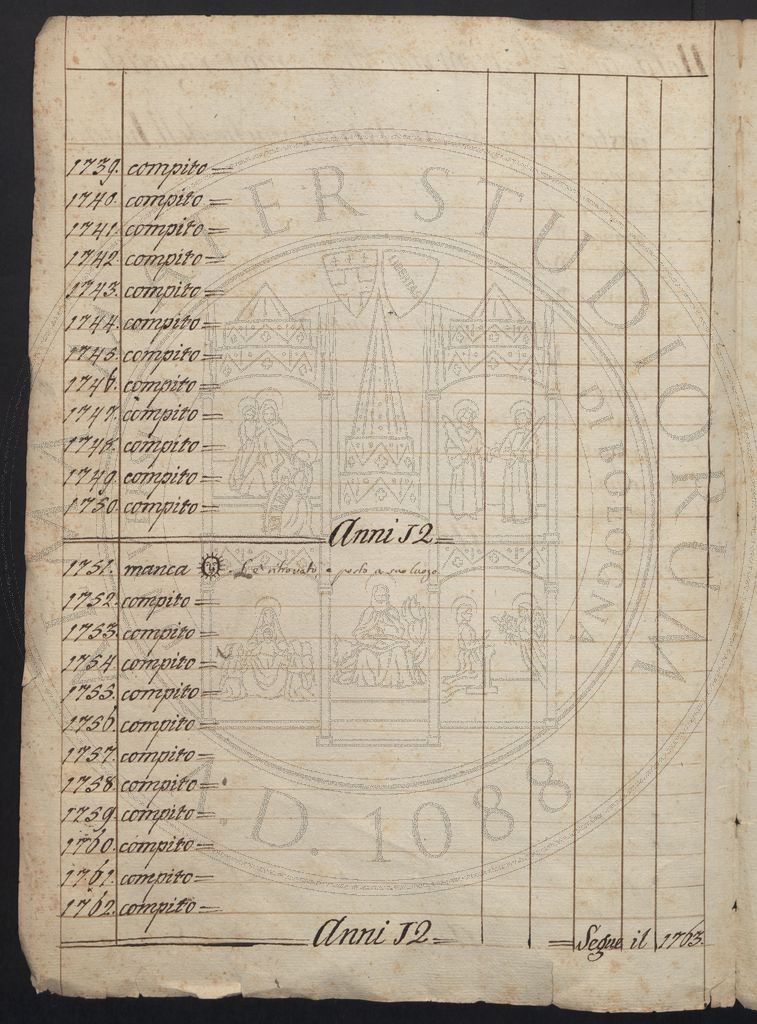 1739. compito =
1740. compito =
1741. compito =
1742. compito =
1743. compito =
1744. compito =
1745. compito =
1746. compito =
1747. compito =
1748. compito =
1749. compito =
1750. compito =
Anni 12 =
1751. manca = è ritrovato e posto a suo luogo
1752. compito =
1753. compito =
1754. compito =
1755. compito =
1756. compito =
1757. compito =
1758. compito =
1759. compito =
1760. compito =
1761. compito =
1762. compito =
Anni 12 =
= Segue il 1763.
ALMA MATER STUDIORUM
A.D. 1088
DI BOLOGNA
LIBERTAS